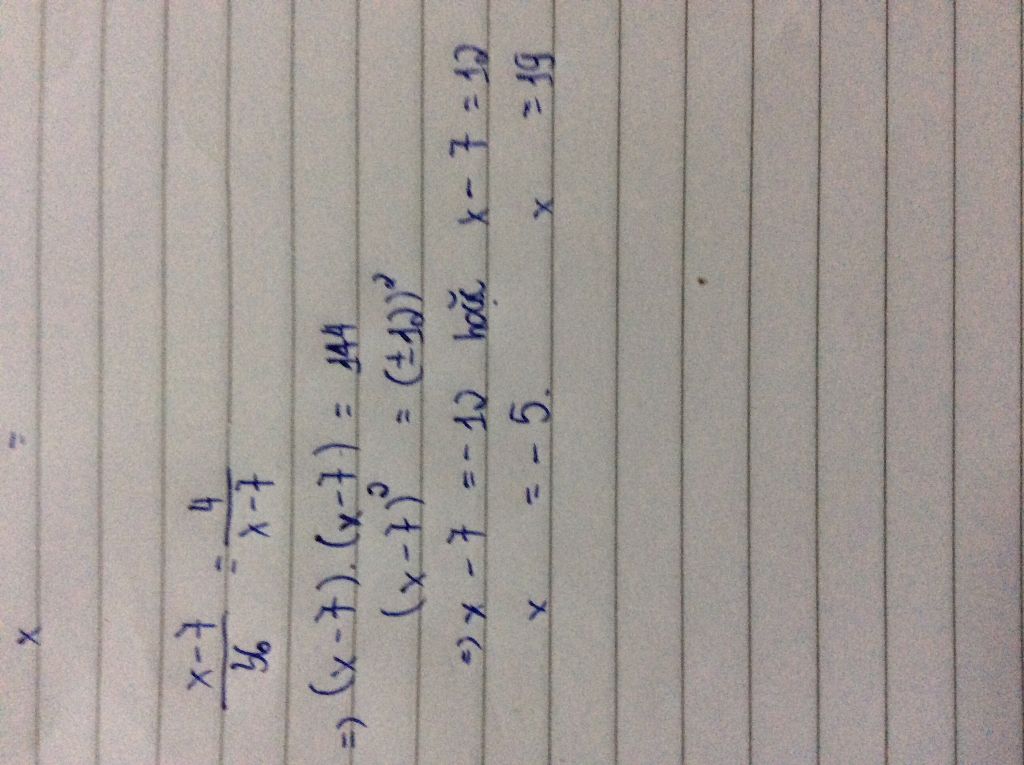 x =
x-7 4
— = —
36 x-7
=) (x-7).(x-7) = 144
(x-7)² = (±12)²
=) x - 7 = -12 hoặc x - 7 = 12
x = -5. x = 19